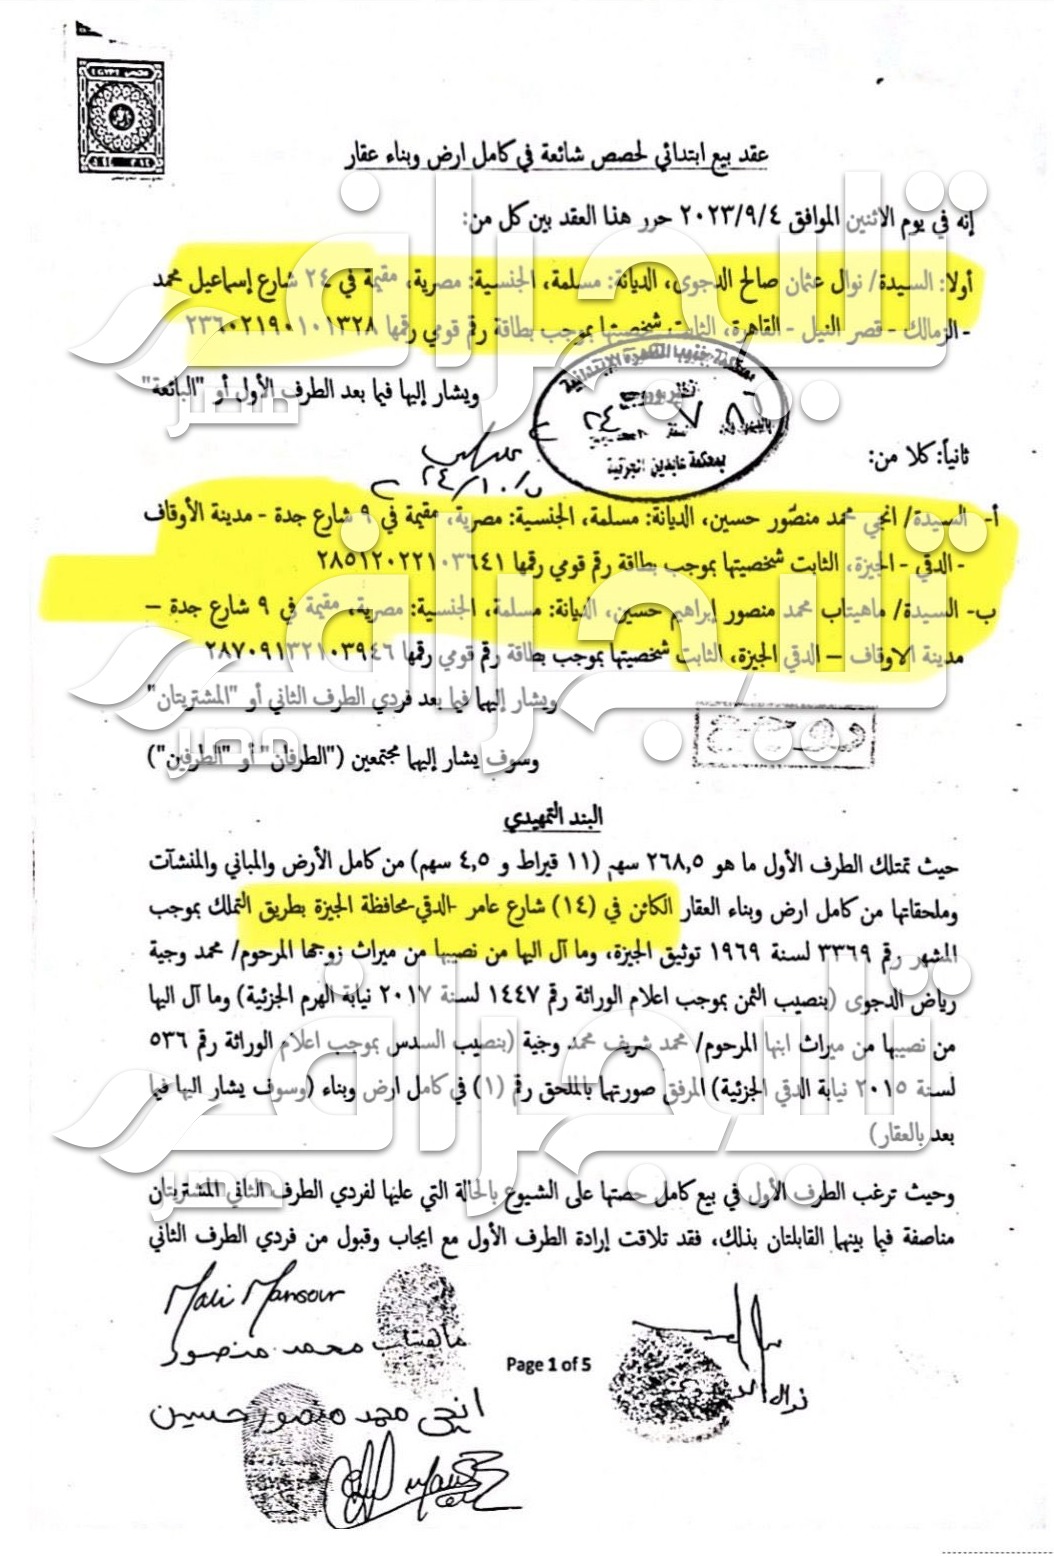 عقد بيع ابتدائي لحصص شائعة في كامل ارض وبناء عقار
إنه في يوم الاثنين الموافق ٢٠٢٣/٩/٤ حرر هذا العقد بين كل من:
أولا: السيدة/ نوال عثمان صالح الدجوى، الديانة: مسلمة، الجنسية: مصرية، مقيمة في ٢٤ شارع إسماعيل محمد
- الزمالك - قصر النيل - القاهرة، الثابت شخصيتها بموجب بطاقة رقم قومي رقمها ٢٣٦٠٢١٩٠١٠١٣٢٨
ويشار إليها فيما بعد الطرف الأول أو "البائعة"
محكمة جنوب القاهرة الابتدائية
بمحكمة عابدين الجزئية
ثانياً: كلا من:
أ- السيدة/ انجي محمد منصور حسين، الديانة: مسلمة، الجنسية: مصرية، مقيمة في ٩ شارع جدة - مدينة الأوقاف
- الدقي - الجيزة، الثابت شخصيتها بموجب بطاقة رقم قومي رقمها ٢٨٥١٢٠٢٢١٠٣٦٤١
ب- السيدة/ ماهيتاب محمد منصور إبراهيم حسين، الديانة: مسلمة، الجنسية: مصرية، مقيمة في ٩ شارع جدة –
مدينة الاوقاف – الدقي الجيزة، الثابت شخصيتها بموجب بطاقة رقم قومي رقمها ٢٨٧٠٩١٣٢١٠٣٩٤٦
ويشار إليها فيما بعد فردي الطرف الثاني أو "المشتريتان"
وسوف يشار إليها مجتمعين ("الطرفان" أو "الطرفين")
البند التمهيدي
حيث تمتلك الطرف الأول ما هو ٢٦٨,٥ سهم (١١ قيراط و ٤,٥ سهم) من كامل الأرض والمباني والمنشآت
وملحقاتها من كامل ارض وبناء العقار الكائن في (١٤) شارع عامر -الدقي-محافظة الجيزة بطريق التملك بموجب
المشهر رقم ٣٣٦٩ لسنة ١٩٦٩ توثيق الجيزة، وما آل اليها من نصيبها من ميراث زوجها المرحوم/ محمد وجية
رياض الدجوى (بنصيب الثمن بموجب اعلام الوراثة رقم ١٤٤٧ لسنة ٢٠١٧ نيابة الهرم الجزئية) وما آل اليها
من نصيبها من ميراث ابنها المرحوم/ محمد شريف محمد وجية (بنصيب السدس بموجب اعلام الوراثة رقم ٥٣٦
لسنة ٢٠١٥ نيابة الدقي الجزئية) المرفق صورتها بالملحق رقم (١) في كامل ارض وبناء (وسوف يشار اليها فيما
بعد بالعقار)
وحيث ترغب الطرف الأول في بيع كامل حصتها على الشيوع بالحالة التي عليها لفردي الطرف الثاني المشتريتان
مناصفة فيما بينهما القابلتان بذلك، فقد تلاقت إرادة الطرف الأول مع ايجاب وقبول من فردي الطرف الثاني
Mahi Mansour
ماهيتاب محمد منصور
Page 1 of 5
نوال الدجوى
انجى محمد منصور حسين
تليجراف
مصر